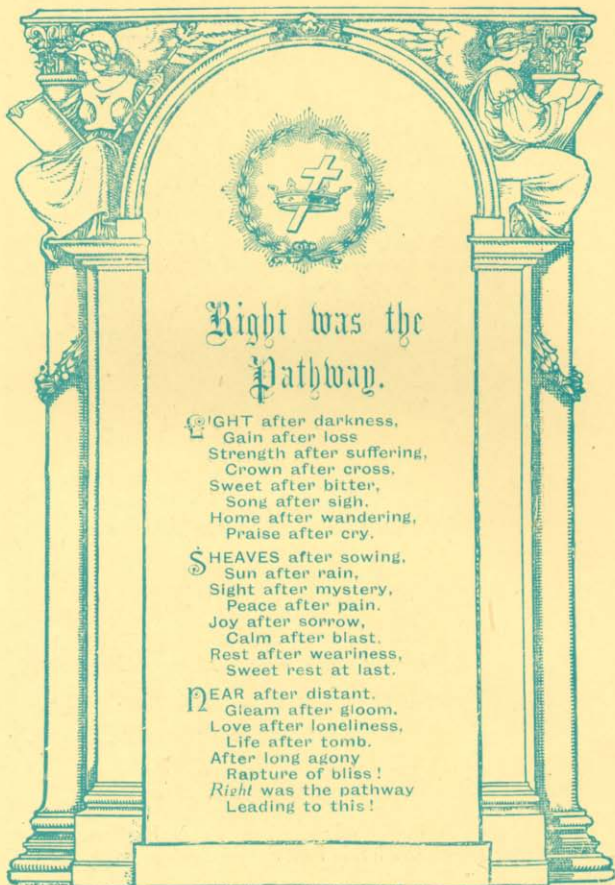 Right was the
Pathway.
LIGHT after darkness,
Gain after loss
Strength after suffering,
Crown after cross,
Sweet after bitter,
Song after sigh,
Home after wandering,
Praise after cry.
SHEAVES after sowing,
Sun after rain,
Sight after mystery,
Peace after pain.
Joy after sorrow,
Calm after blast,
Rest after weariness,
Sweet rest at last.
NEAR after distant.
Gleam after gloom,
Love after loneliness,
Life after tomb.
After long agony
Rapture of bliss!
Right was the pathway
Leading to this!